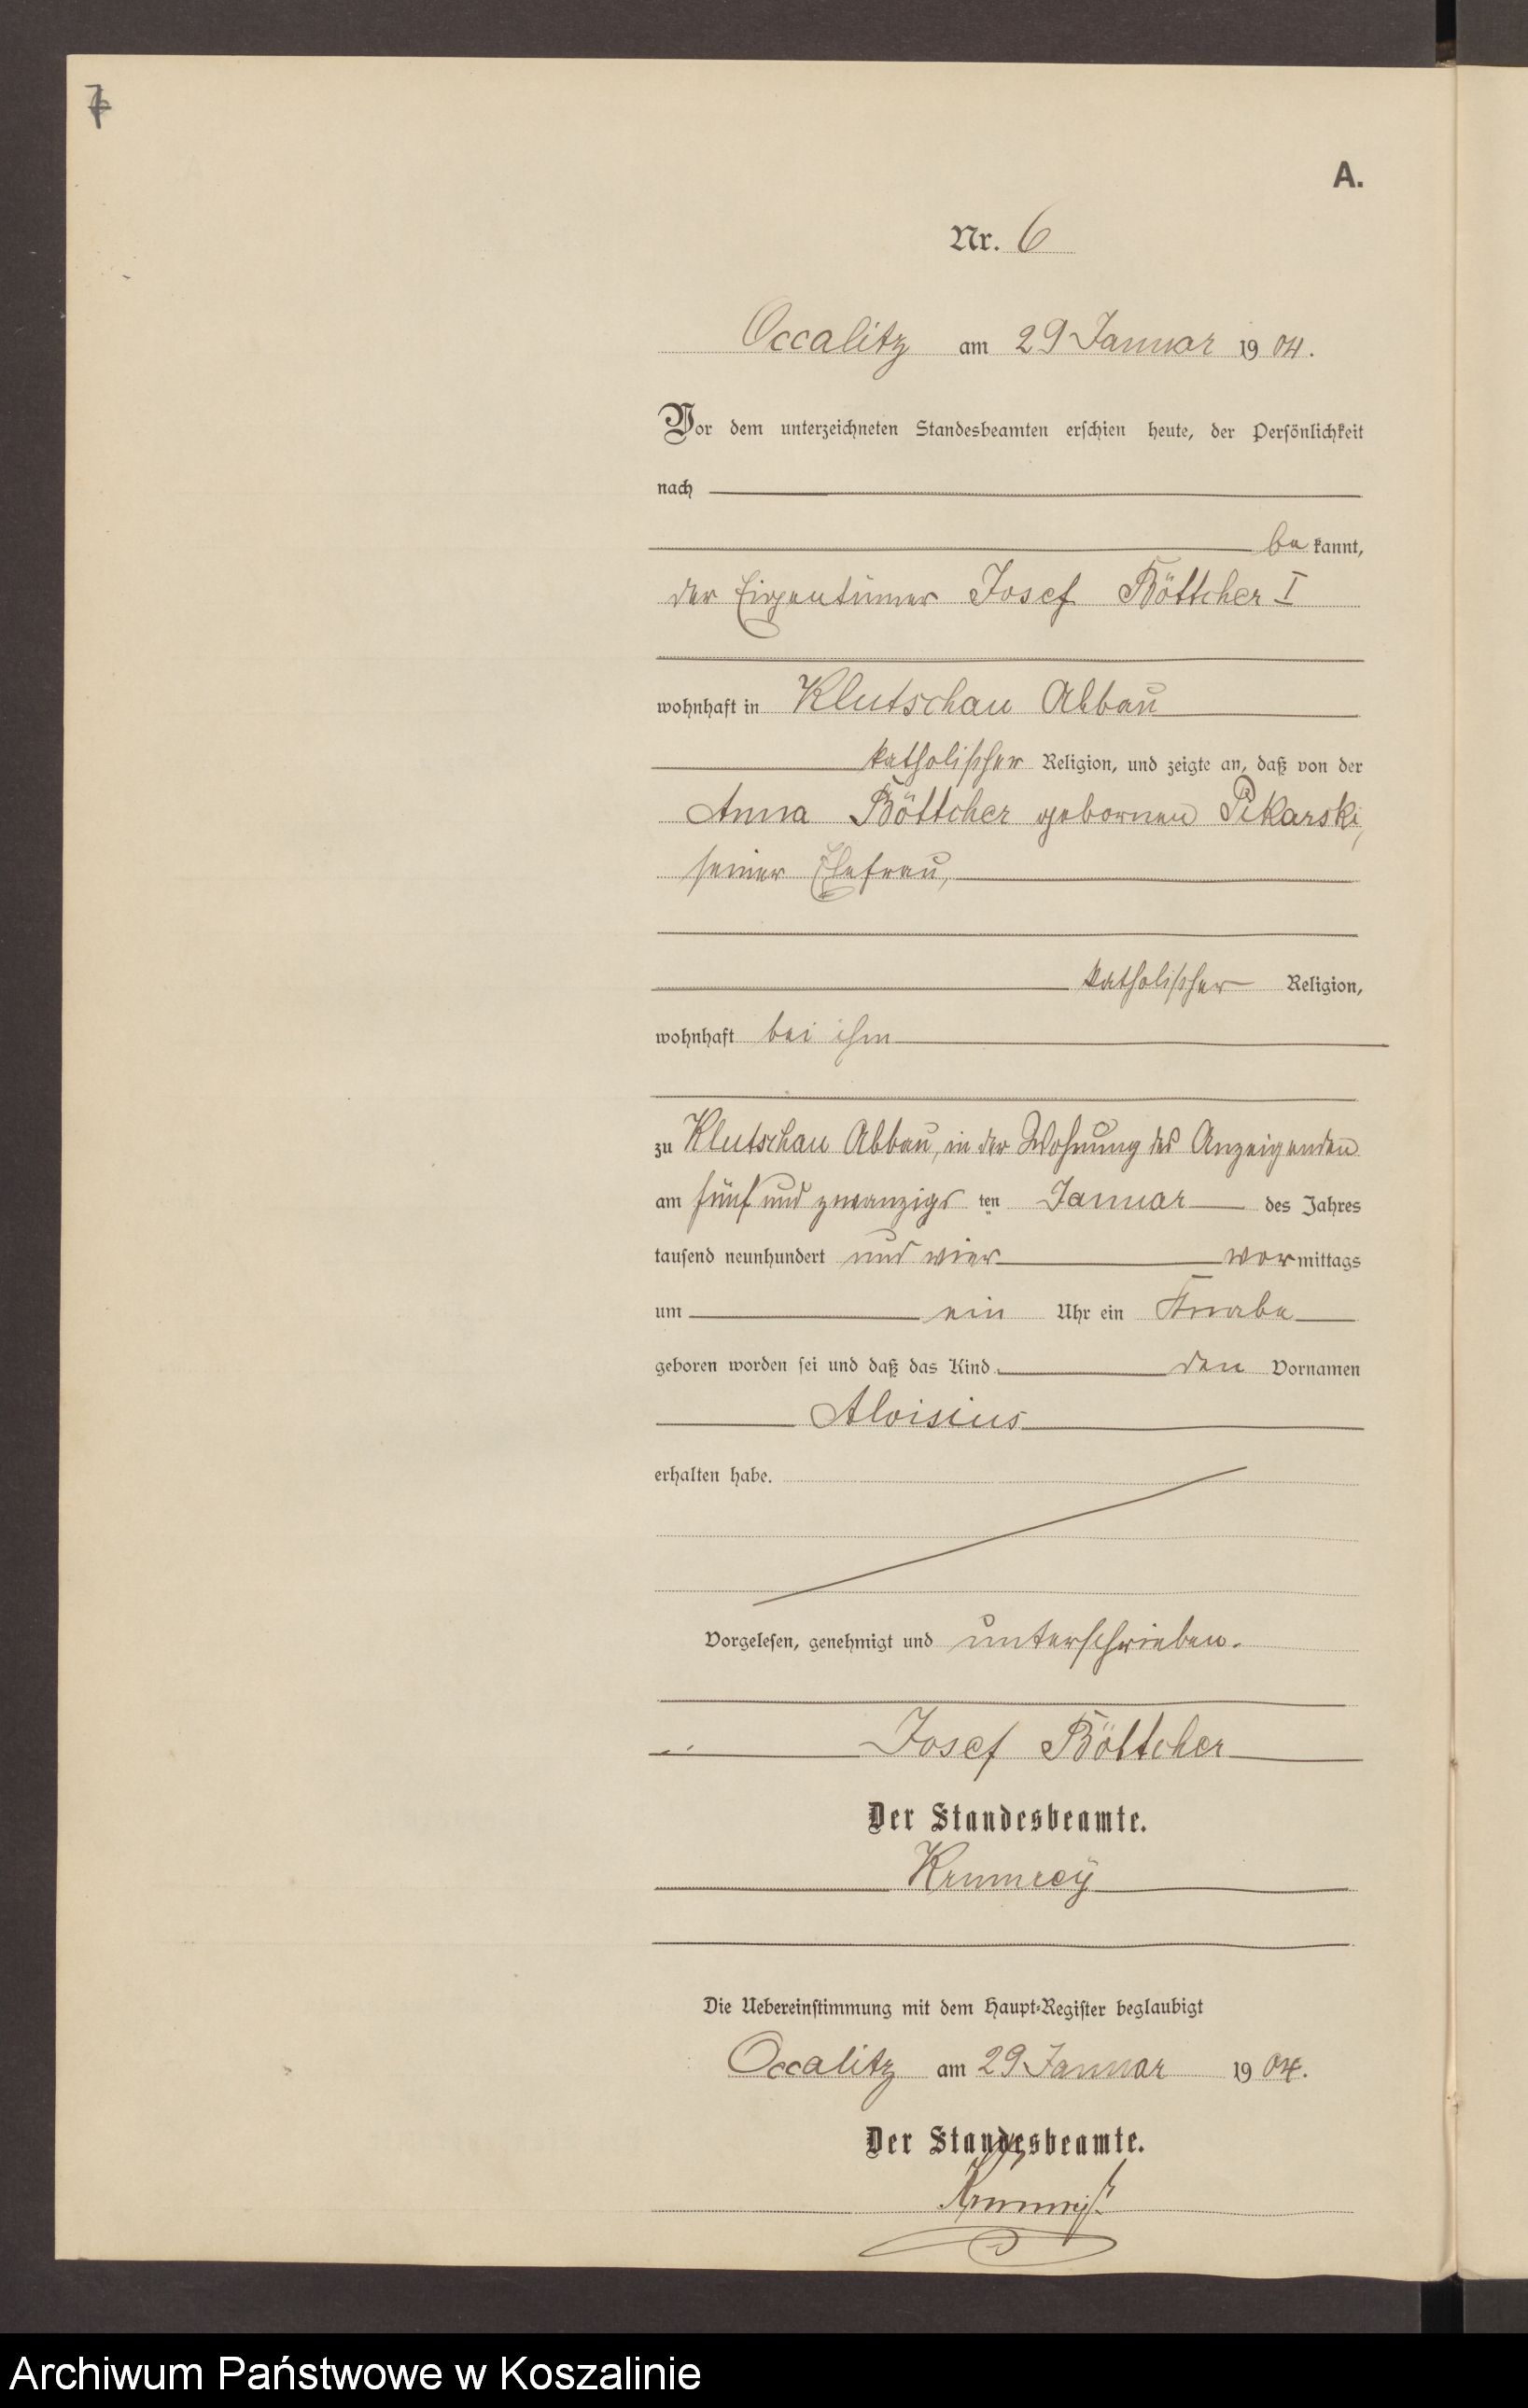 7
A.
Nr. 6
Occalitz am 29 Januar 1904.
Vor dem unterzeichneten Standesbeamten erschien heute, der Persönlichkeit
nach
be kannt,
der Eigentümer Josef Böttcher I
wohnhaft in Klutschau Abbau
katholischer Religion, und zeigte an, daß von der
Anna Böttcher gebornen Pikarski,
seiner Ehefrau,
katholischer Religion,
wohnhaft bei ihm
zu Klutschau Abbau, in der Wohnung des Anzeigenden
am fünf und zwanzigs ten Januar des Jahres
tausend neunhundert und vier vor mittags
um ein Uhr ein Knabe
geboren worden sei und daß das Kind den Vornamen
Aloisius
erhalten habe.
Vorgelesen, genehmigt und unterschrieben.
Josef Böttcher
Der Standesbeamte.
Krumreÿ
Die Uebereinstimmung mit dem Haupt-Register beglaubigt
Occalitz am 29 Januar 1904.
Der Standesbeamte.
Archiwum Państwowe w Koszalinie